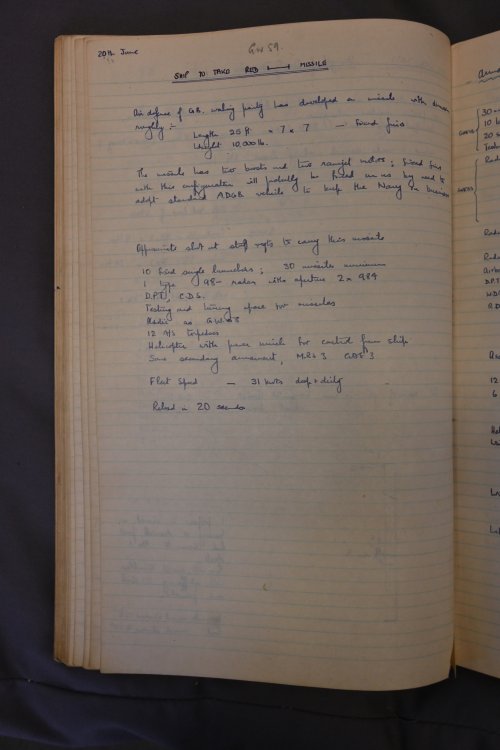 20th June
GW 59.
SHIP TO TAKE RED ⊢—⊣ MISSILE
Air defence of G.B. working party has developed a missile with dimensions
roughly :-
Length 25 ft × 7 × 7 — Fixed fins
Weight 10,000 lb.
The missile has two boosts and two ramjet motors ; fixed fins
with this configuration will probably be forced on us by need to
adopt standard ADGB vehicle to keep the Navy in business
Approximate shot at staff reqts to carry this missile
10 fixed single launchers ; 30 missiles minimum
1 type 98- radar with aperture 2 × 984
D.P.T., C.D.S.
Testing and tuning space for missiles
Radar as G.W. 3
12 A/S torpedoes
Helicopter with power winch for control from ship
Some secondary armament, M.R.S 3 GDS 3
Fleet Speed — 31 knots deep & dirty
Reload in 20 seconds
30
10
20
GUNS
Radar
Radar
D.P.T.
12
6